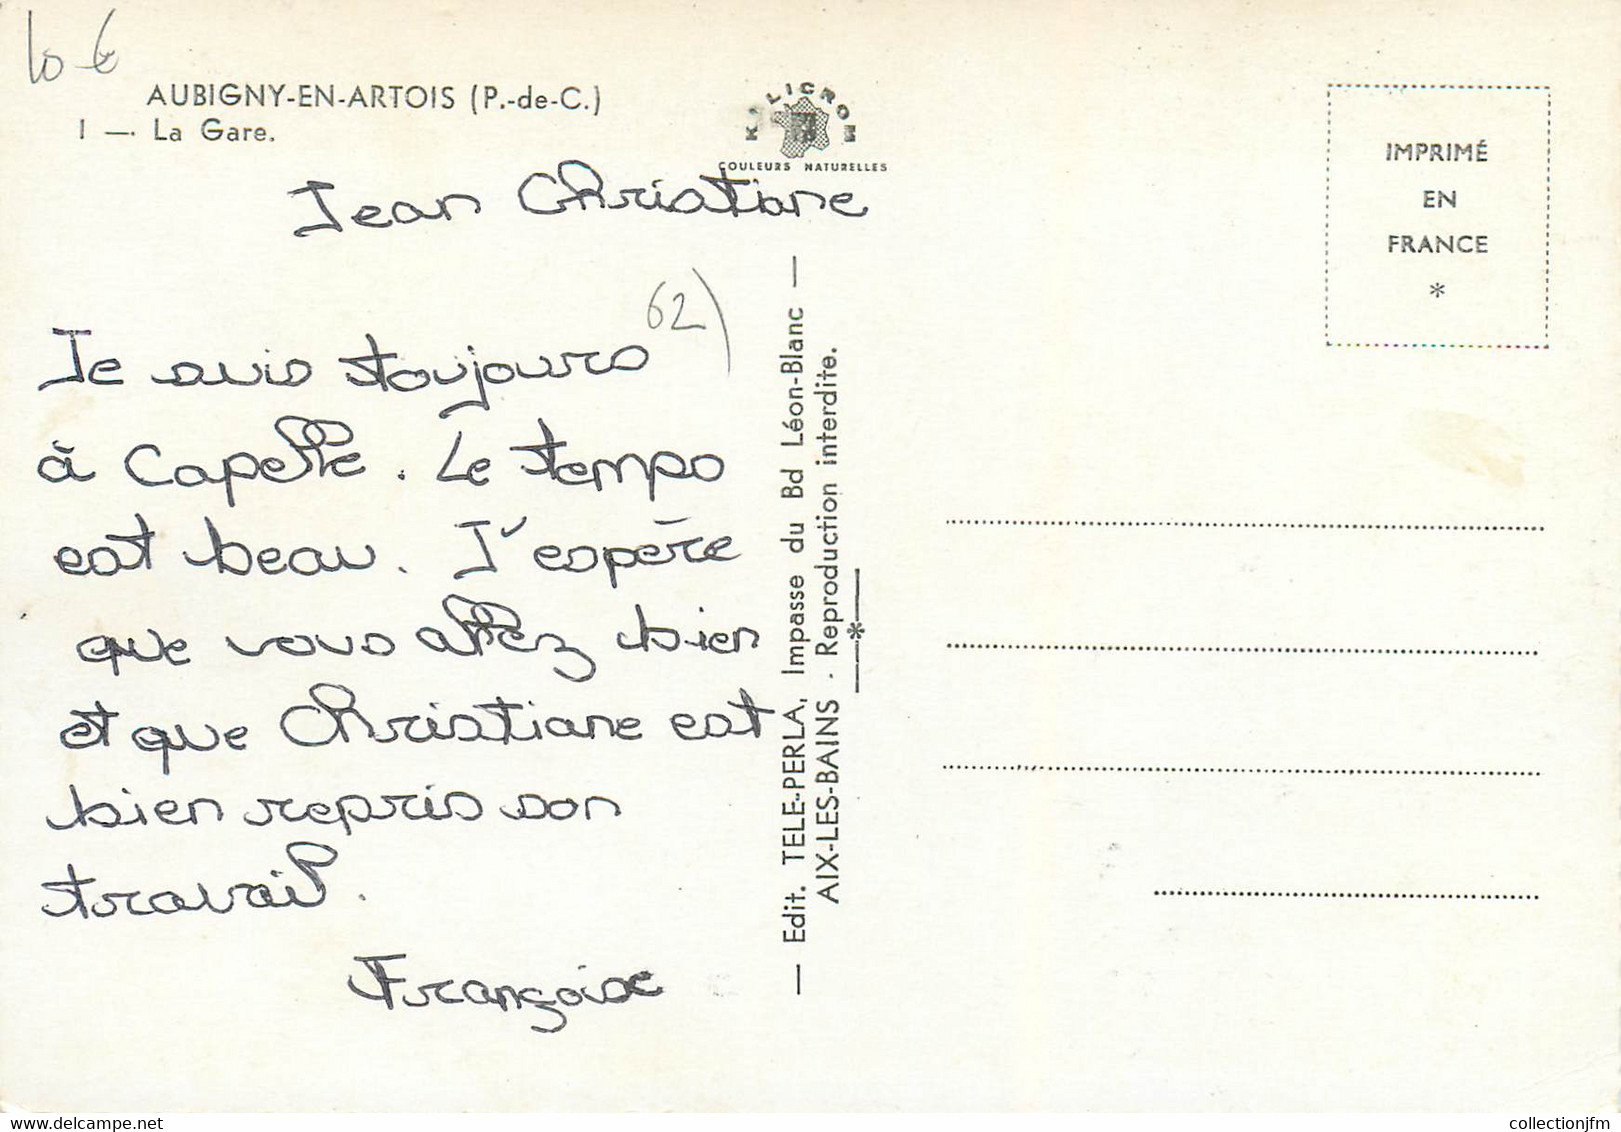 10 €
AUBIGNY-EN-ARTOIS (P.-de-C.)
1 — La Gare.
KALICROM
COULEURS NATURELLES
IMPRIMÉ
EN
FRANCE
*
Jean Christiane
62)
Je suis toujours
à Capelle. Le temps
est beau. J'espère
que vous allez bien
et que Christiane est
bien repris son
travail.
Françoise
— Edit. TELE-PERLA, Impasse du Bd Léon-Blanc —
AIX-LES-BAINS - Reproduction interdite.
—*—
collectionjfm